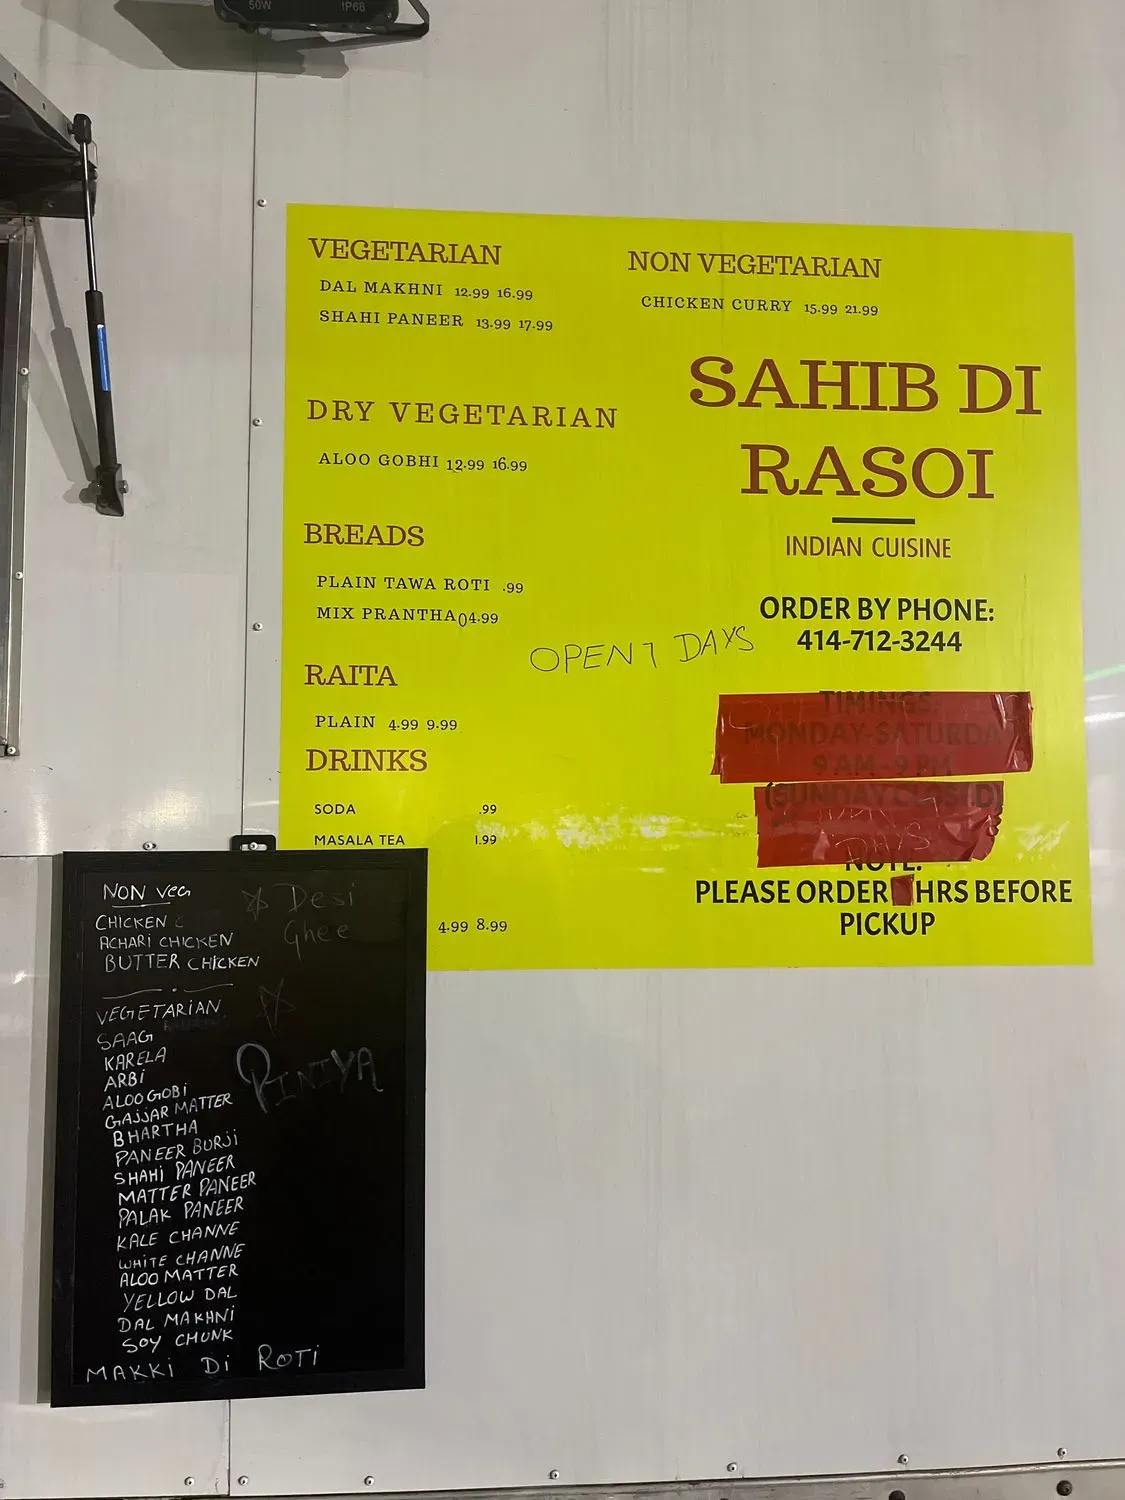 50W IP68
VEGETARIAN
DAL MAKHNI 12.99 16.99
SHAHI PANEER 13.99 17.99
DRY VEGETARIAN
ALOO GOBHI 12.99 16.99
BREADS
PLAIN TAWA ROTI .99
MIX PRANTHA 04.99
RAITA
PLAIN 4.99 9.99
DRINKS
SODA .99
MASALA TEA 1.99
4.99 8.99
NON VEGETARIAN
CHICKEN CURRY 15.99 21.99
SAHIB DI
RASOI
INDIAN CUISINE
ORDER BY PHONE:
414-712-3244
OPEN 7 DAYS
TIMINGS:
MONDAY-SATURDA
9 AM - 9 PM
DAYS
NOTE:
PLEASE ORDER HRS BEFORE
PICKUP
NON VEG
CHICKEN
ACHARI CHICKEN
BUTTER CHICKEN
VEGETARIAN
SAAG
KARELA
ARBI
ALOO GOBI
GAJJAR MATTER
BHARTHA
PANEER BURJI
SHAHI PANEER
MATTER PANEER
PALAK PANEER
KALE CHANNE
WHITE CHANNE
ALOO MATTER
YELLOW DAL
DAL MAKHNI
SOY CHUNK
MAKKI DI ROTI
Desi
Ghee
PINIYA